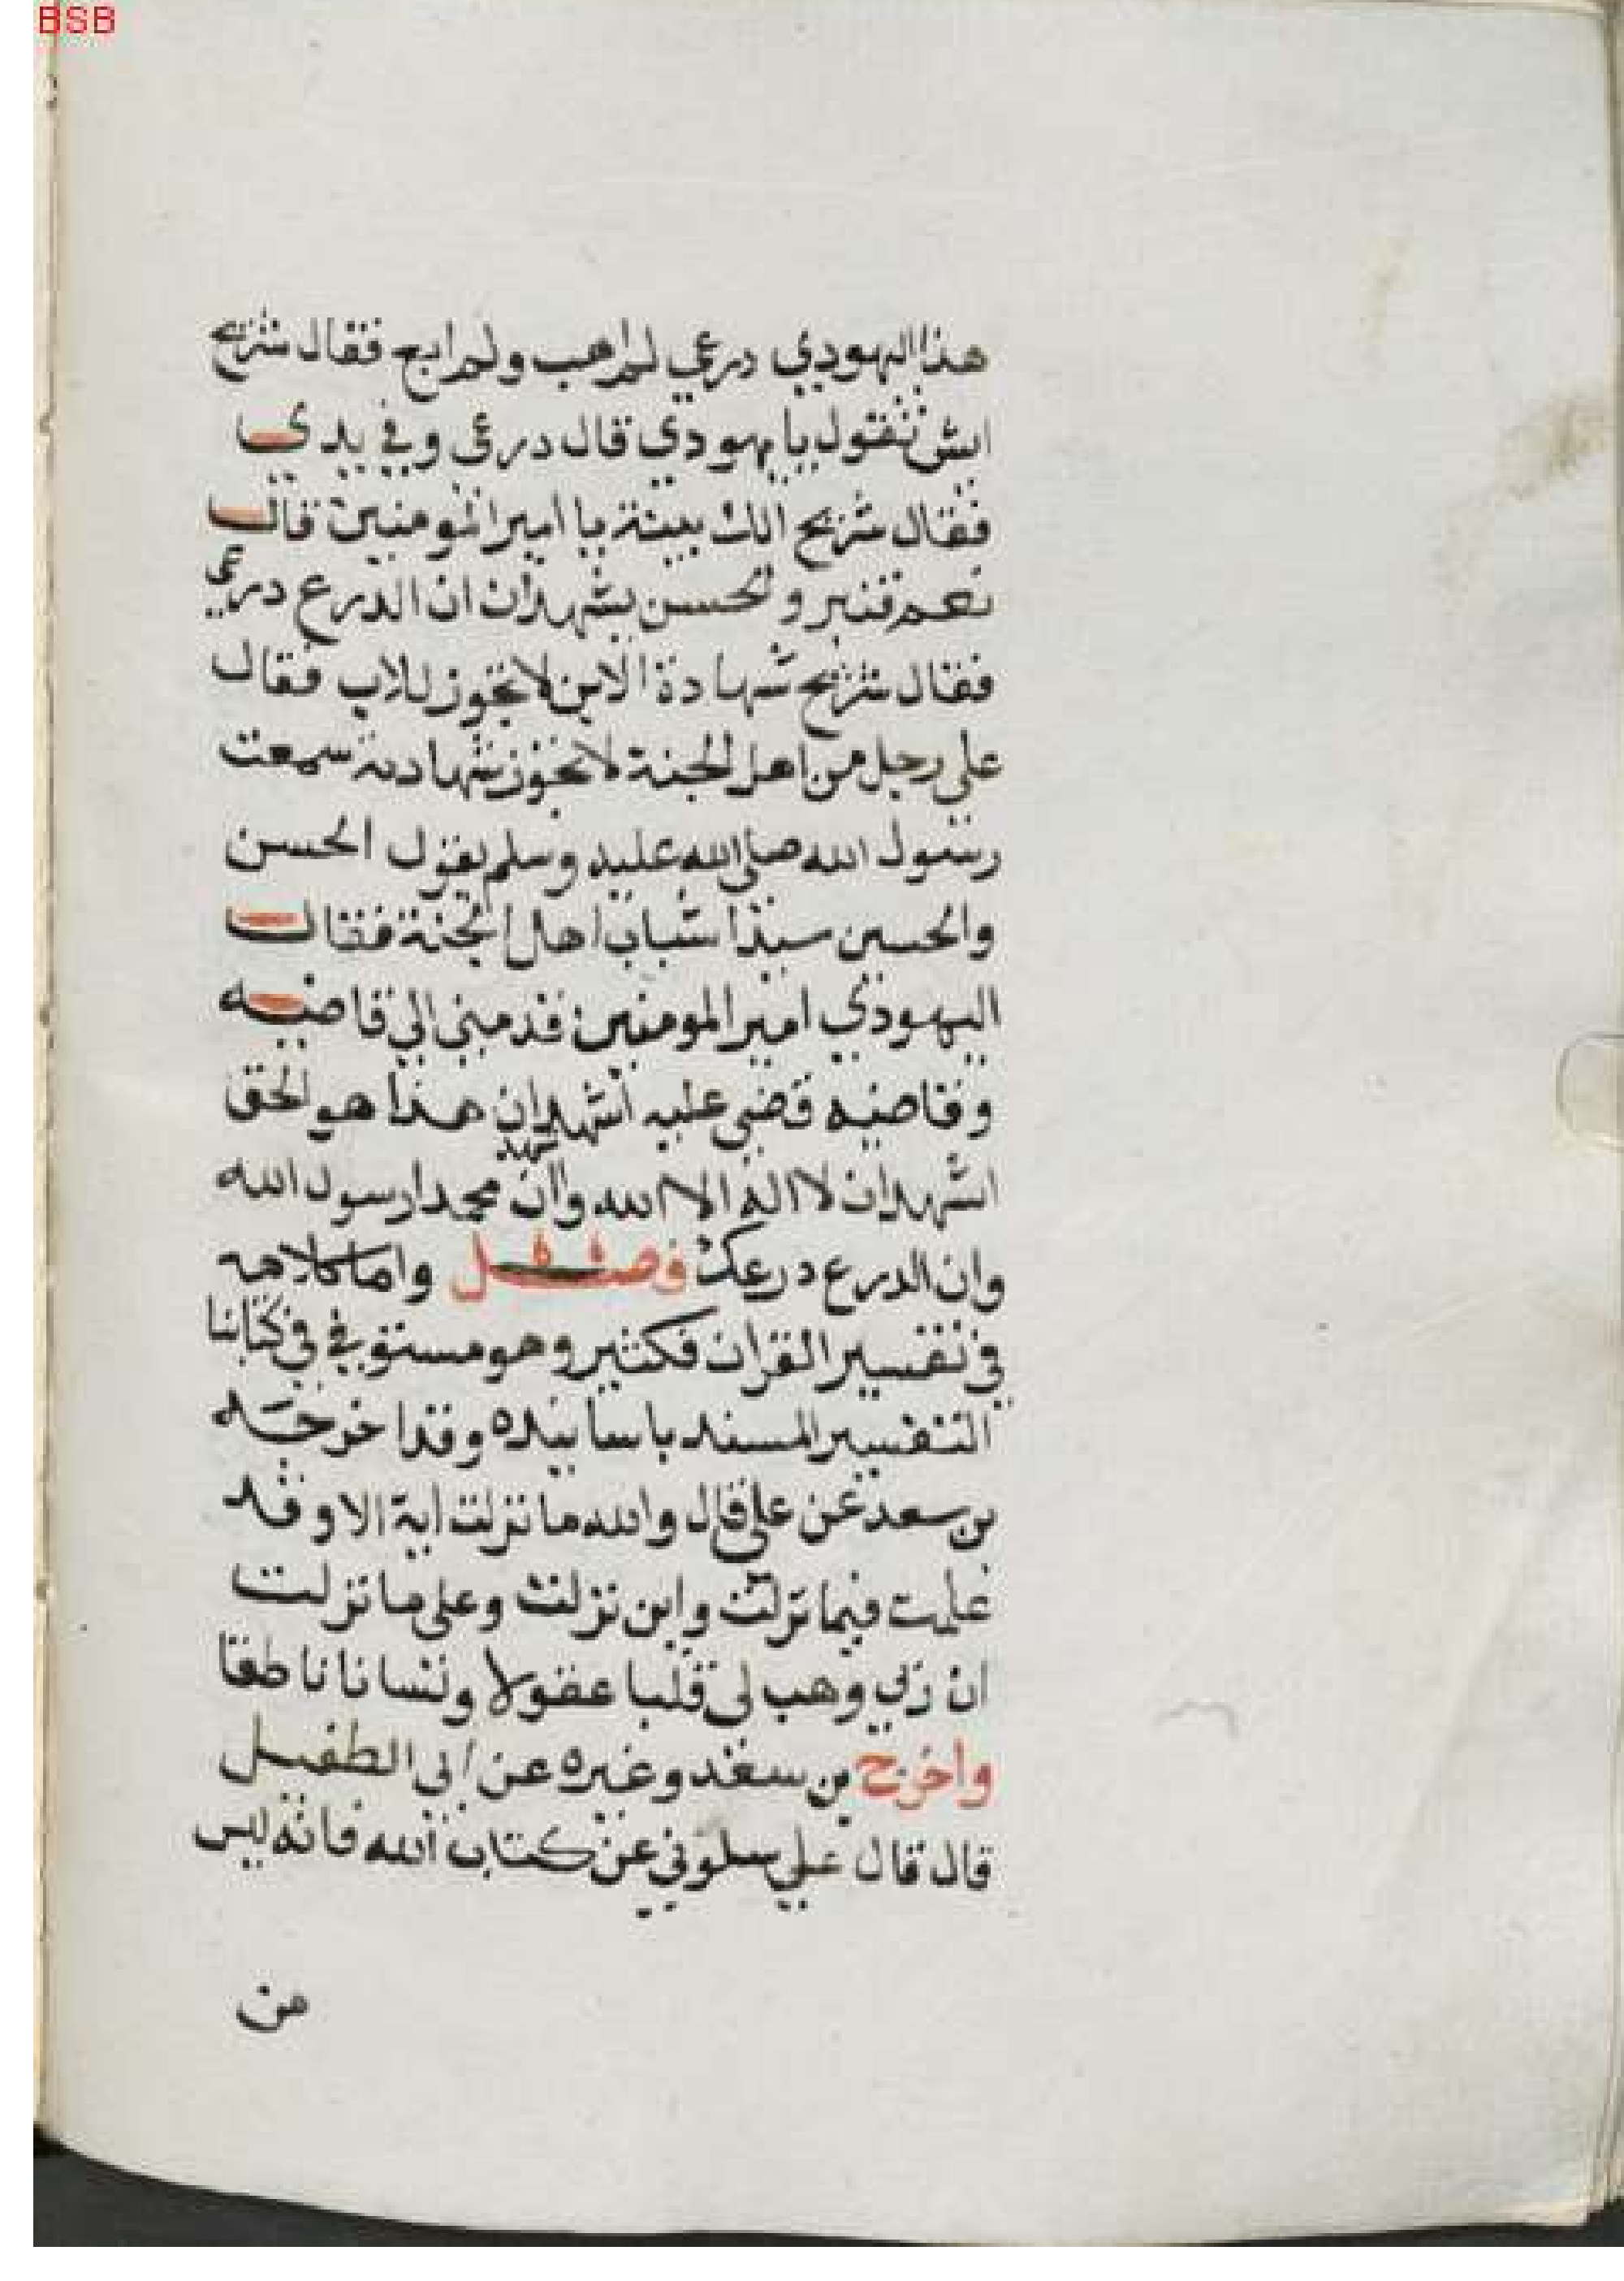 BSB
هذا اليهودي درعي لم اهب ولم ابع فقال شريح
ايش تقول يا يهودي قال درعي وفي يدي
فقال شريح الك بينة يا امير المومنين قال
نعم قنبر والحسن يشهدان ان الدرع درعي
فقال شريح شهادة الابن لا تجوز للاب فقال
علي رجل من اهل الجنة لا تجوز شهادته سمعت
رسول الله صلى الله عليه وسلم يقول الحسن
والحسين سيدا شباب اهل الجنة فقال
اليهودي امير المومنين قدمني الي قاضيه
وقاضيه قضي عليه اشهد ان هذا هو الحق
اشهد ان لا اله الا الله وان محمدا رسول الله
وان الدرع درعك فصل واما كلامه
في تفسير القران فكثير وهو مستوفي في كتابنا
التفسير المسند باسانيده وقد اخرجه
بن سعد عن علي قال والله ما نزلت اية الا وقد
علمت فيما نزلت واين نزلت وعلى ما نزلت
ان ربي وهب لي قلبا عقولا ولسانا ناطقا
واخرج بن سعد وغيره عن ابي الطفيل
قال قال علي سلوني عن كتاب الله فانه ليس
من